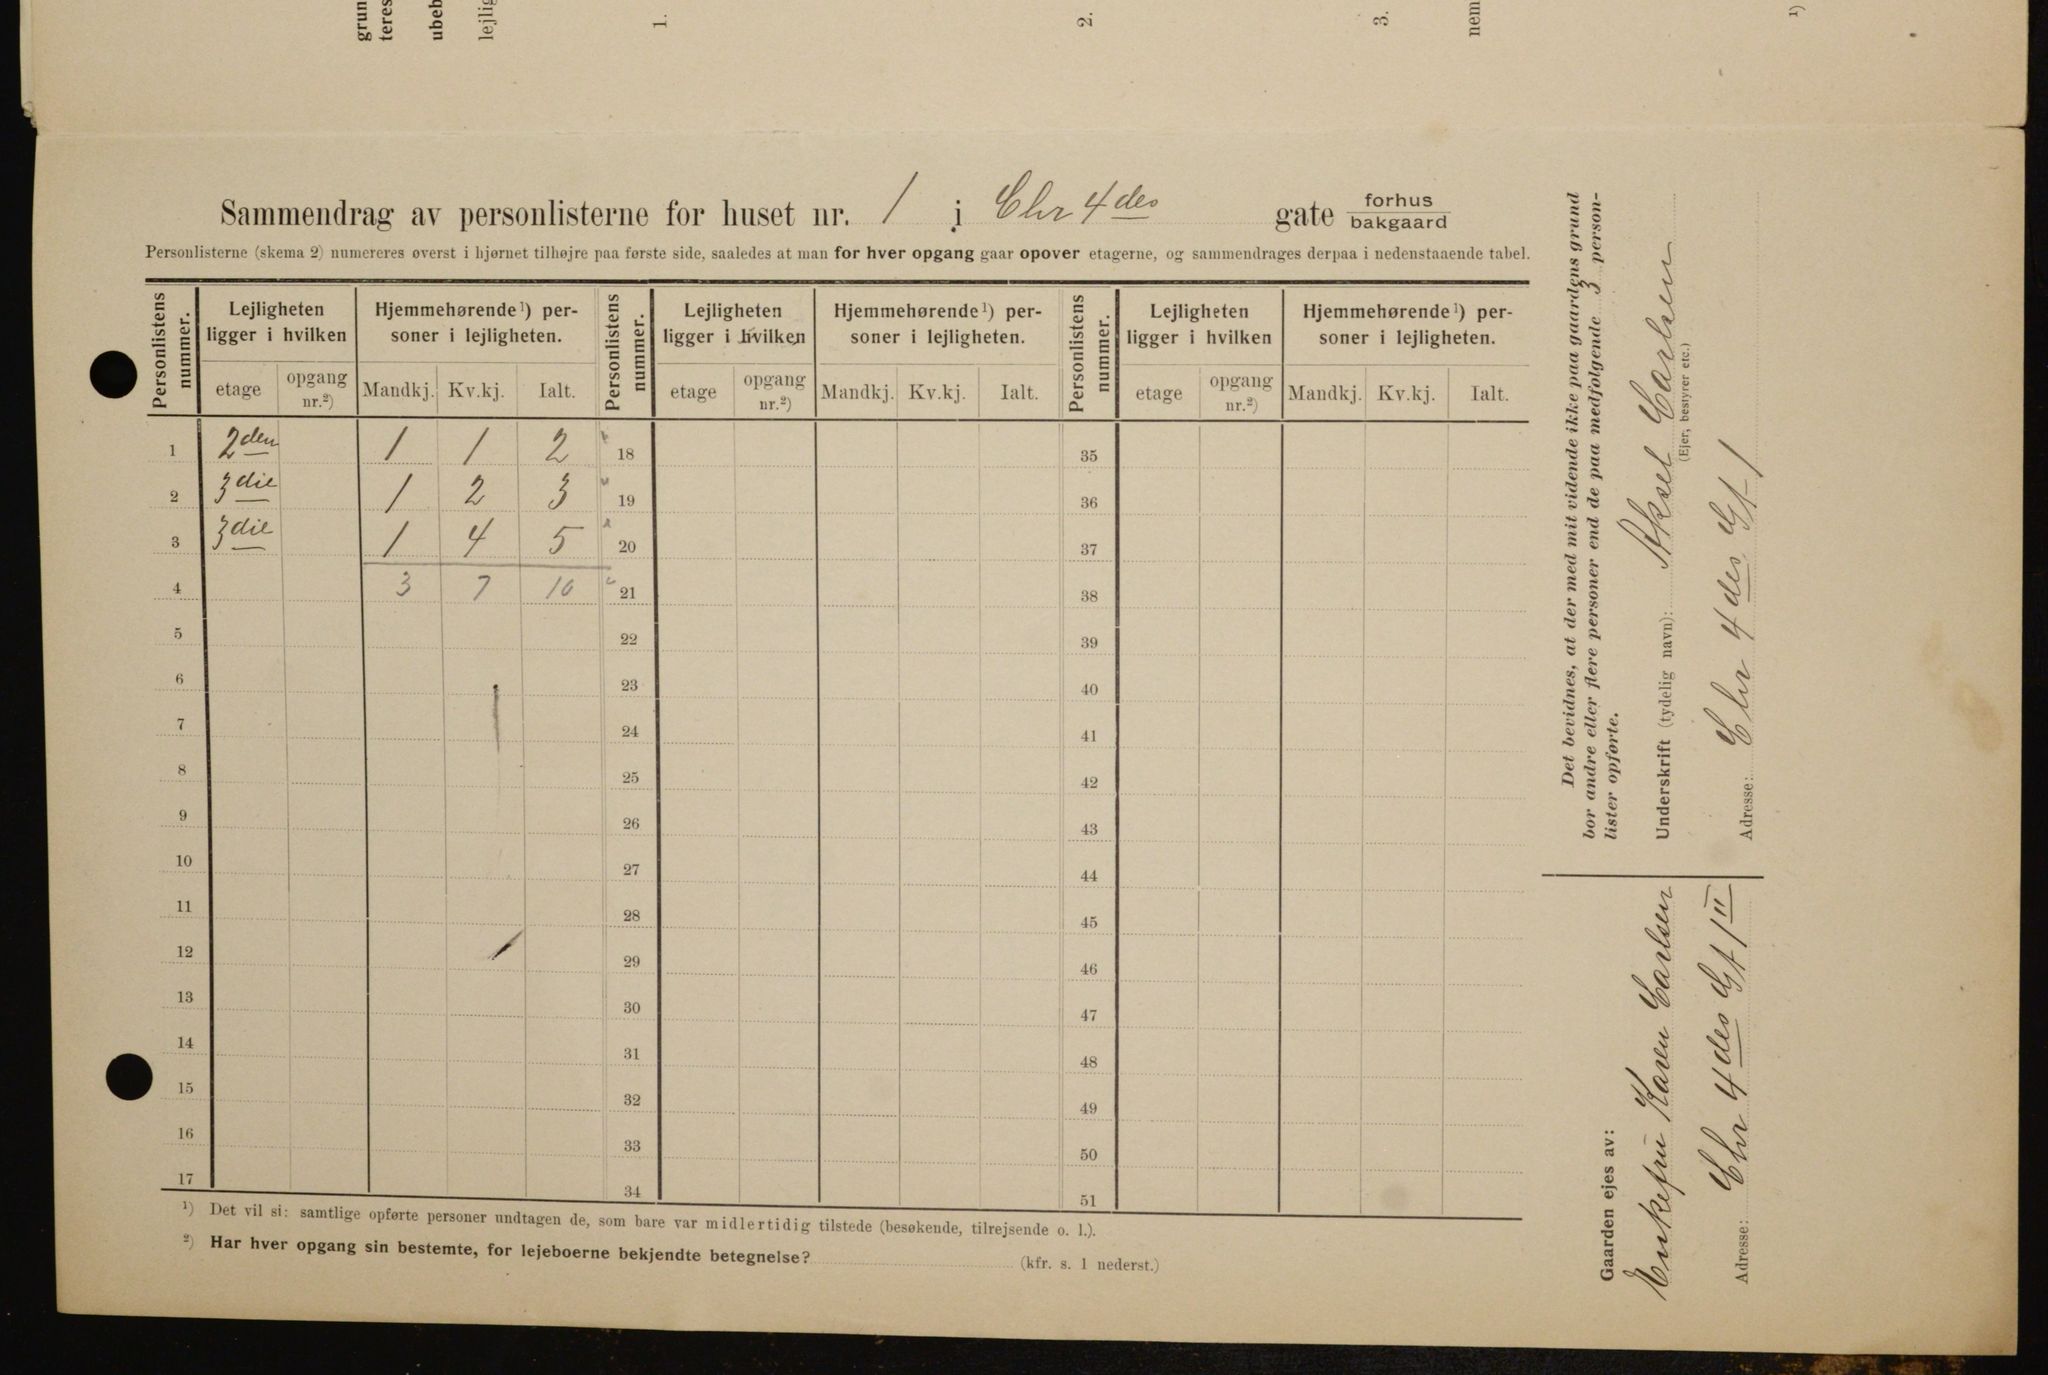 grun
teres
ubeb
lejlig
1.
2.
3.
nem
1)
Sammendrag av personlisterne for huset nr. 1 i Chr 4 des gate forhus
bakgaard
Personlisterne (skema 2) numereres øverst i hjørnet tilhøjre paa første side, saaledes at man for hver opgang gaar opover etagerne, og sammendrages derpaa i nedenstaaende tabel.
Personlistens nummer. Lejligheten ligger i hvilken Hjemmehørende 1) personer i lejligheten. Personlistens nummer. Lejligheten ligger i hvilken Hjemmehørende 1) personer i lejligheten. Personlistens nummer. Lejligheten ligger i hvilken Hjemmehørende 1) personer i lejligheten.
etage opgang nr.2) Mandkj. Kv.kj. Ialt. etage opgang nr.2) Mandkj. Kv.kj. Ialt. etage opgang nr.2) Mandkj. Kv.kj. Ialt.
1 2den 1 1 2 18 35
2 3die 1 2 3 19 36
3 3die 1 4 5 20 37
4 3 7 10 21 38
5 22 39
6 23 40
7 24 41
8 25 42
9 26 43
10 27 44
11 28 45
12 29 46
13 30 47
14 31 48
15 32 49
16 33 50
17 34 51
1) Det vil si: samtlige opførte personer undtagen de, som bare var midlertidig tilstede (besøkende, tilrejsende o. l.).
2) Har hver opgang sin bestemte, for lejeboerne bekjendte betegnelse? (kfr. s. 1 nederst.)
Det bevidnes, at der med mit vidende ikke paa gaardens grund
bor andre eller flere personer end de paa medfølgende 3 person-
lister opførte.
Underskrift (tydelig navn): Aksel Carlsen
(Ejer, bestyrer etc.)
Adresse: Chr 4 des Gt 1
Gaarden ejes av:
Enkefru Karen Carlsen
Adresse: Chr 4 des Gt 1 II